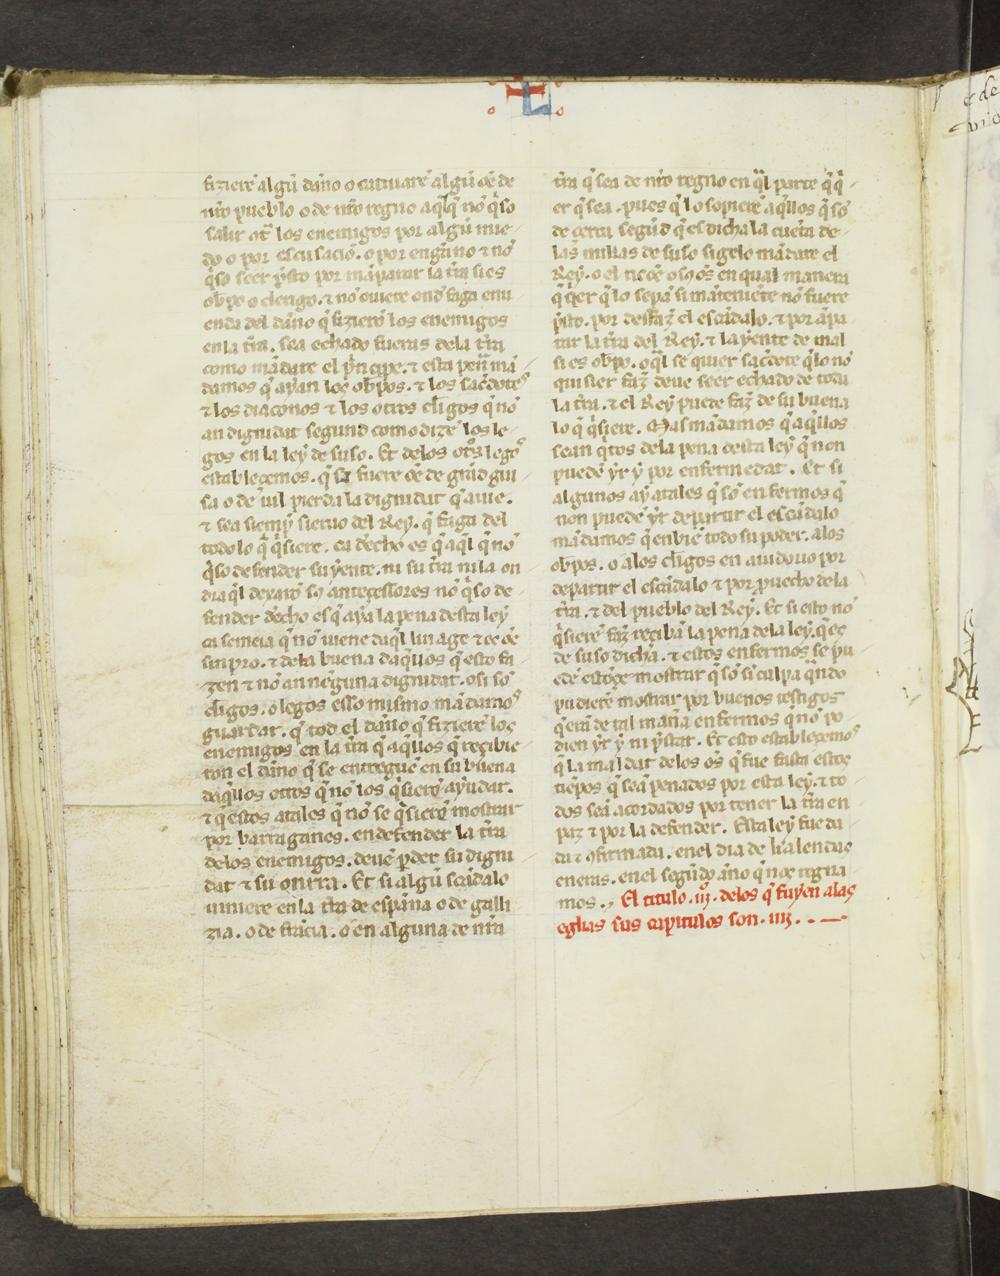 L
fizierē algū daño o catiuarē algū oē de
nr̄o pueblo o de nr̄o regno aq̄l q̄ nō q̄so
salir ot̄ los enemigos por algū mie-
do o por escusaciō. o por engaño ⁊ nō
q̄so seer p̄sto por māparar la tr̄ra si es
obp̄o o clerigo. ⁊ nō ouiere onđ faga emi
enda del daño q̄ fizierē los enemigos
en la tr̄ra. sea echado fueras dela tr̄ra
como mādare el p̄ncipe. ⁊ esta pen̄a mā
damos q̄ ayan los obp̄os. ⁊ los sac̄dotes
⁊ los diaconos ⁊ los otros cligos q̄ nō
an dignidat segund como dize los le-
gos en la ley de suso. Et delos ot̄s legos
establecemos. q̄ si fuere oē de grād gui
sa o de uil pierda la dignidat q̄ auie.
⁊ sea siemp̄ sieruo del Rey. q̄ faga del
todo lo q̄ q̄siere. ca dēcho es q̄ aq̄l q̄ nō
q̄so defender su yente. ni su tr̄ra ni la on
dia q̄l dexarō sos antecessores nō q̄so de-
fender dēcho es q̄ aya la pena desta ley
ca semeia q̄ nō uiene daq̄l linage ⁊ es oē
sin pro. ⁊ dela buena daq̄llos q̄ esto fa
zen ⁊ nō an neguna dignidat. o si sō
cligos. o legos esso mismo mādamos
guardar. q̄ tod el daño q̄ fizierē los
enemigos en la tr̄ra q̄ aq̄llos q̄ recibie
ron el daño q̄ se entreguē en su buena
daq̄llos otros q̄ nō los q̄sierē ayudar.
⁊ q̄ estos atales q̄ nō se q̄sierē mostrar
por barraganes. en defender la tr̄ra
delos enemigos. deuē p̄der su digni
dat ⁊ su onrra. Et si algū scādalo
uiniere en la tr̄ra de españa o de galli
zia. o de frācia. o en alguna tr̄ra
tr̄ra q̄ sea de nr̄o regno en q̄l parte q̄ q̄
er q̄ sea. pues q̄ lo sopierē aq̄llos q̄ sō
de cerca segūd q̄ es dicha la cuēta de-
las millas de suso si gelo mādare el
Rey. o el ricoē o so oē en qual manera
q̄ q̄er q̄ lo sepa si māteniēte nō fuere
p̄sto. por desfaz̄ el escādalo. ⁊ por āpa
rar la tr̄ra del Rey. ⁊ la yente de mal
si es obp̄o. o q̄l se quier sac̄dote q̄ lo nō
quisier faz̄ deue seer echado de toda
la tr̄ra. ⁊ el Rey puede faz̄ de su buena
lo q̄ q̄siere. Mas mādamos q̄ aq̄llos
sean q̄tos dela pena desta ley q̄ non
puedē yr y por enfermedat. Et si
algunos ay atales q̄ sō enfermos q̄
non puedē yr departir el escādalo
mādamos q̄ enbiē todo su poder. alos
obp̄os. o alos cligos en aiudorio por
departir el escādalo ⁊ por prouecho dela
tr̄ra. ⁊ del pueblo del Rey. Et si esto nō
q̄sierē faz̄ recibā la pena dela ley. q̄ es
de suso dicha. ⁊ estos enfermos se pu
edē mostrar q̄ sō si culpa q̄ndo
pudierē mostrar por buenos testigos
q̄ erā de tal mañā enfermos q̄ nō po
dien yr y ni p̄star. Et esto establecemos
q̄ la maldat delos oēs q̄ fue fasta estos
tiēpos q̄ seā penados por esta ley. ⁊ to
dos seā acordados por tener la tr̄ra en
paz ⁊ por la defender. Esta ley fue da
da ⁊ ꝯfirmada. en el dia de kalendas
eneras. en el segūdo año q̄ nos regna
mos. El titulo .iii. delos q̄ fuyen alas
eglias sus capitulos son .iiii.